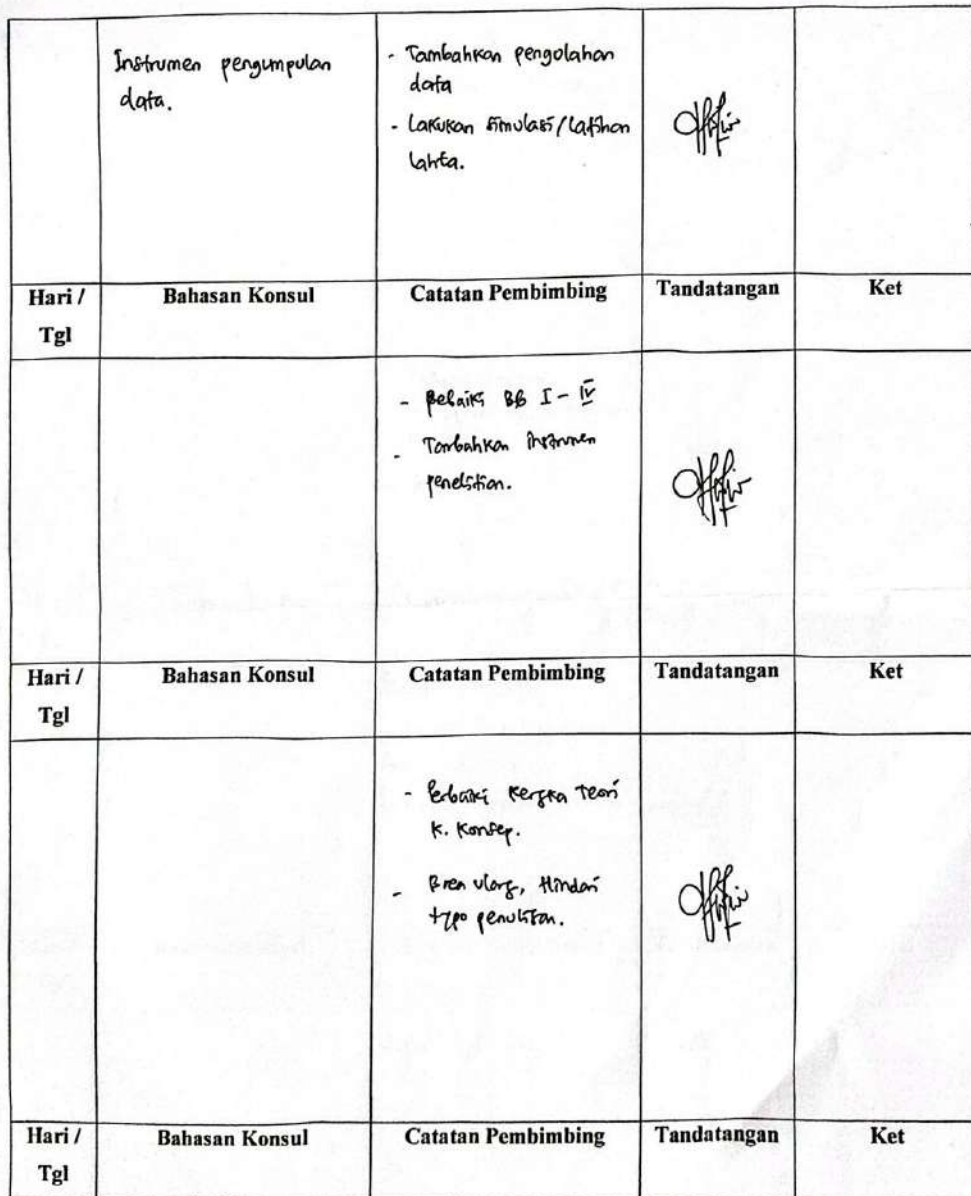 Instrumen pengumpulan
data.
- Tambahkan pengolahan
data
- Lakukan simulasi/latihan
Hari / Tgl
Bahasan Konsul
Catatan Pembimbing
Tandatangan
Ket
- BB I - IV
- Tambahkan instrumen
penelitian.
Hari / Tgl
Bahasan Konsul
Catatan Pembimbing
Tandatangan
Ket
- Perbaiki Teori
K. Konsep.
- ulang, Hindari
typo penulisan.
Hari / Tgl
Bahasan Konsul
Catatan Pembimbing
Tandatangan
Ket